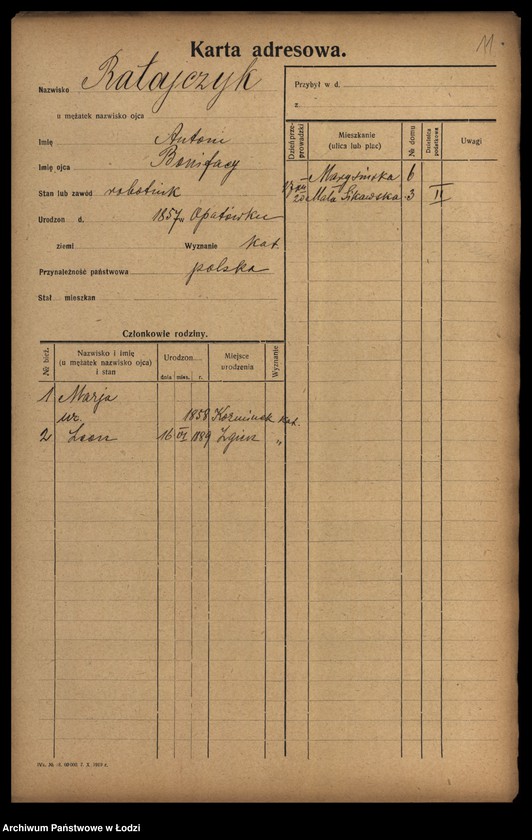 Karta adresowa.
11
Nazwisko Ratajczyk
u mężatek nazwisko ojca
Imię Antoni
Imię ojca Bonifacy
Stan lub zawód robotnik
Urodzon d. 1857 w Opatówku
ziemi Wyznanie kat.
Przynależność państwowa polska
Stał. mieszkan
Przybył w d.
z
Dzień przeprowadzki Mieszkanie (ulica lub plac) № domu Dzielnica podatkowa Uwagi
Marysińska 6
Mała Sikawska 3 II
Członkowie rodziny.
№ bież. Nazwisko i imię (u mężatek nazwisko ojca) i stan Urodzon Miejsce urodzenia Wyznanie
dnia mies. r.
1 Marja
ur. 1858 Koźminek kat.
2 Leon 16 VI 1889 Zgierz „
Archiwum Państwowe w Łodzi